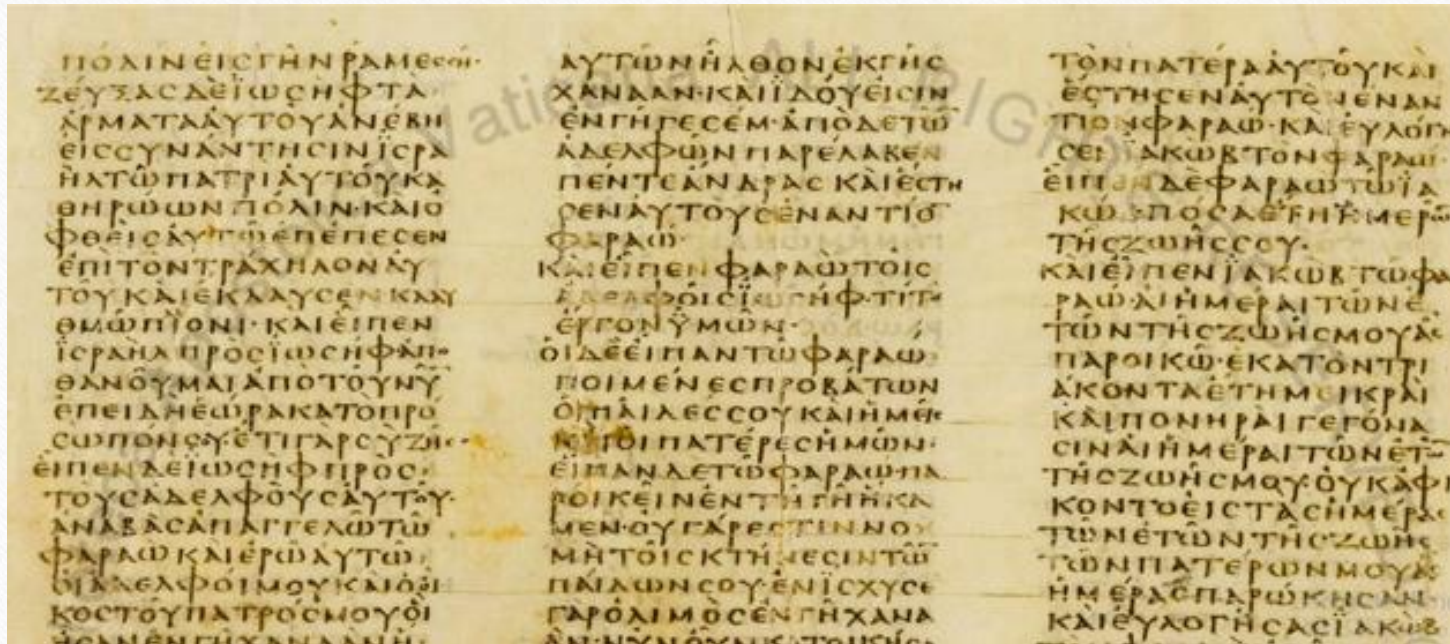 ΠΟΛΙΝΕΙΣΓΗΝΡΑΜΕΣΣΗ·
ΖΕΥΞΑΣΔΕΪΩΣΗΦΤΑ
ΑΡΜΑΤΑΑΥΤΟΥΑΝΕΒΗ
ΕΙΣΣΥΝΑΝΤΗΣΙΝΪΣΡΑ
ΗΛΤΩΠΑΤΡΙΑΥΤΟΥΚΑ
ΘΗΡΩΩΝΠΟΛΙΝ·ΚΑΙΟ
ΦΘΕΙΣΑΥΤΩΕΠΕΠΕΣΕΝ
ΕΠΙΤΟΝΤΡΑΧΗΛΟΝΑΥ
ΤΟΥΚΑΙΕΚΛΑΥΣΕΝΚΛΑΥ
ΘΜΩΠΪΟΝΙ·ΚΑΙΕΙΠΕΝ
ΪΣΡΑΗΛΠΡΟΣΪΩΣΗΦΑΠΟ
ΘΑΝΟΥΜΑΙΑΠΟΤΟΥΝΥ̅
ΕΠΕΙΔΗΕΩΡΑΚΑΤΟΠΡΟ
ΣΩΠΟΝΣΟΥΕΤΙΓΑΡΣΥΖΗΣ
ΕΙΠΕΝΔΕΪΩΣΗΦΠΡΟΣ
ΤΟΥΣΑΔΕΛΦΟΥΣΑΥΤΟΥ·
ΑΝΑΒΑΣΑΠΑΓΓΕΛΩΤΩ
ΦΑΡΑΩΚΑΙΕΡΩΑΥΤΩ
ΟΙΑΔΕΛΦΟΙΜΟΥΚΑΙΟΟΙ
ΚΟΣΤΟΥΠΑΤΡΟΣΜΟΥΟΙ
ΗΣΑΝΕΝΓΗΧΑΝΑΑΝΗ
ΑΥΤΩΝΗΛΘΟΝΕΚΓΗΣ
ΧΑΝΑΑΝ·ΚΑΙΪΔΟΥΕΙΣΙΝ
ΕΝΓΗΓΕΣΕΜ·ΑΠΟΔΕΤΩ̅
ΑΔΕΛΦΩΝΠΑΡΕΛΑΒΕΝ
ΠΕΝΤΕΑΝΔΡΑΣΚΑΙΕΣΤΗ
ΣΕΝΑΥΤΟΥΣΕΝΑΝΤΙΟ̅
ΦΑΡΑΩ·
ΚΑΙΕΙΠΕΝΦΑΡΑΩΤΟΙΣ
ΑΔΕΛΦΟΙΣΪΩΣΗΦ·ΤΙΤΟ
ΕΡΓΟΝΫΜΩΝ·
ΟΙΔΕΕΙΠΑΝΤΩΦΑΡΑΩ
ΠΟΙΜΕΝΕΣΠΡΟΒΑΤΩΝ
ΟΙΠΑΙΔΕΣΣΟΥΚΑΙΗΜΕΙΣ
ΚΑΙΟΙΠΑΤΕΡΕΣΗΜΩΝ·
ΕΙΠΑΝΔΕΤΩΦΑΡΑΩ·ΠΑ
ΡΟΙΚΕΙΝΕΝΤΗΓΗΗΚΑ
ΜΕΝ·ΟΥΓΑΡΕΣΤΙΝΝΟ
ΜΗΤΟΙΣΚΤΗΝΕΣΙΝΤΩ̅
ΠΑΙΔΩΝΣΟΥ·ΕΝΪΣΧΥΣΕ
ΓΑΡΟΛΙΜΟΣΕΝΓΗΧΑΝΑ
ΑΝ·ΝΥΝΟΥΝΚΑΤΟΙΚΗΣΟ
ΤΟΝΠΑΤΕΡΑΑΥΤΟΥΚΑΙ
ΕΣΤΗΣΕΝΑΥΤΟΝΕΝΑΝ
ΤΙΟΝΦΑΡΑΩ·ΚΑΙΕΥΛΟΓΗ
ΣΕΝΪΑΚΩΒΤΟΝΦΑΡΑΩ
ΕΙΠΕΝΔΕΦΑΡΑΩΤΩΪΑ
ΚΩΒΠΟΣΑΕΤΗΗΜΕΡΩ̅
ΤΗΣΖΩΗΣΣΟΥ·
ΚΑΙΕΙΠΕΝΪΑΚΩΒΤΩΦΑ
ΡΑΩ·ΑΙΗΜΕΡΑΙΤΩΝΕ
ΤΩΝΤΗΣΖΩΗΣΜΟΥΑΣ
ΠΑΡΟΙΚΩ·ΕΚΑΤΟΝΤΡΙ
ΑΚΟΝΤΑΕΤΗΜΕΙΚΡΑΙ
ΚΑΙΠΟΝΗΡΑΙΓΕΓΟΝΑ
ΣΙΝΑΙΗΜΕΡΑΙΤΩΝΕΤΩ̅
ΤΗΣΖΩΗΣΜΟΥ·ΟΥΚΑΦΙ
ΚΟΝΤΟΕΙΣΤΑΣΗΜΕΡΑΣ
ΤΩΝΕΤΩΝΤΗΣΖΩΗΣ
ΤΩΝΠΑΤΕΡΩΝΜΟΥΑΣ
ΗΜΕΡΑΣΠΑΡΩΚΗΣΑΝ
ΚΑΙΕΥΛΟΓΗΣΑΣΪΑΚΩΒ